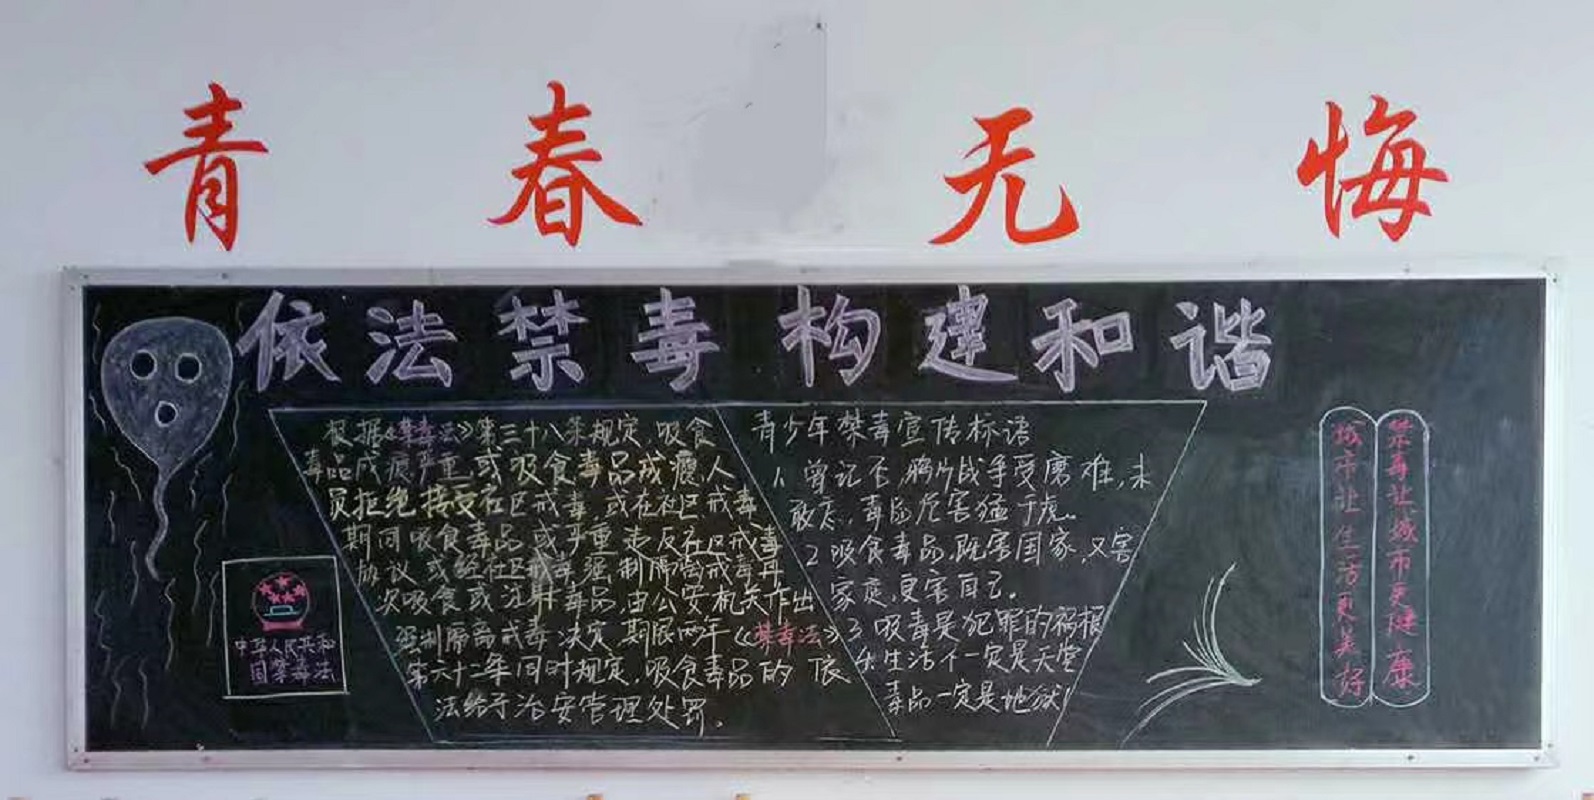 青春无悔
依法禁毒构建和谐
根据《禁毒法》第三十八条规定,吸食
毒品成瘾严重,或吸食毒品成瘾人
员拒绝接受社区戒毒,或在社区戒毒
期间吸食毒品,或严重违反社区戒毒
协议,或经社区戒毒,强制隔离戒毒再
次吸食或注射毒品,由公安机关作出
强制隔离戒毒决定,期限两年《禁毒法》
第六十二条同时规定,吸食毒品的 依
法给予治安管理处罚。
青少年禁毒宣传标语
1、曾记否,鸦片战争受磨难,未
敢忘,毒品危害猛于虎。
2 吸食毒品,既害国家,又害
家庭,更害自己。
3 吸毒是犯罪的祸根
4. 生活不一定是天堂
毒品一定是地狱!
中华人民共和
国禁毒法
禁毒让城市更健康
城市让生活更美好